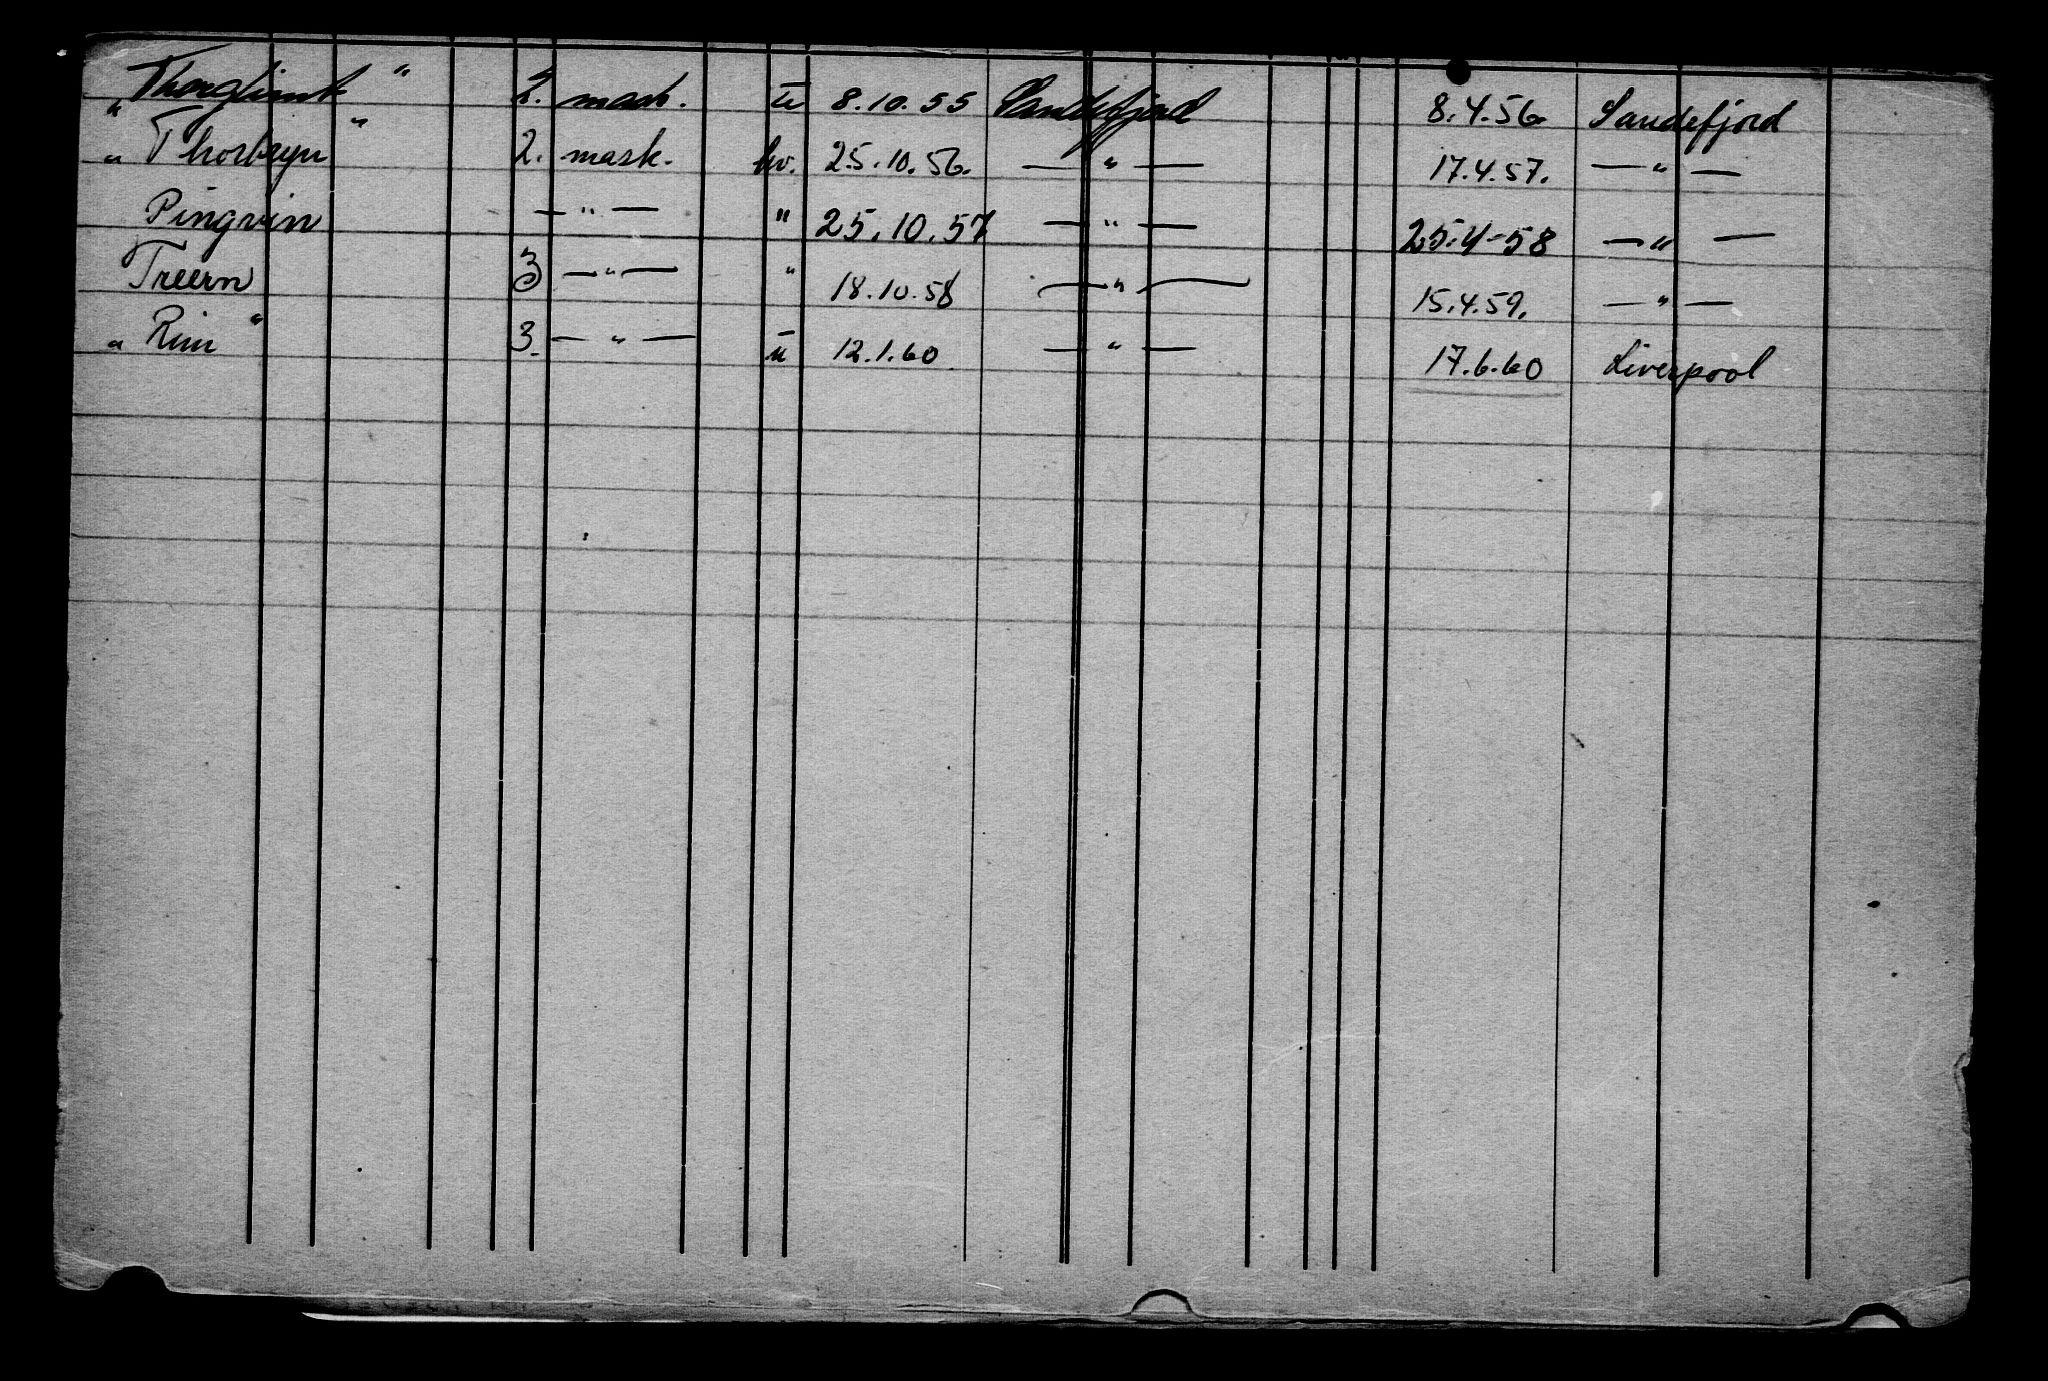 "Thorglimt" 2. mask. ū 8.10.55 Sandefjord 8.4.56. Sandefjord
"Thorbryn" 2. mask. hv. 25.10.56. — " — 17.4.57. — " —
Pingvin — " — " 25.10.57 — " — 25.4-58 — " —
Treern 3 — " — " 18.10.58 — " — 15.4.59. — " —
"Rim" 3. — " — ū 12.1.60 — " — 17.6.60 Liverpool